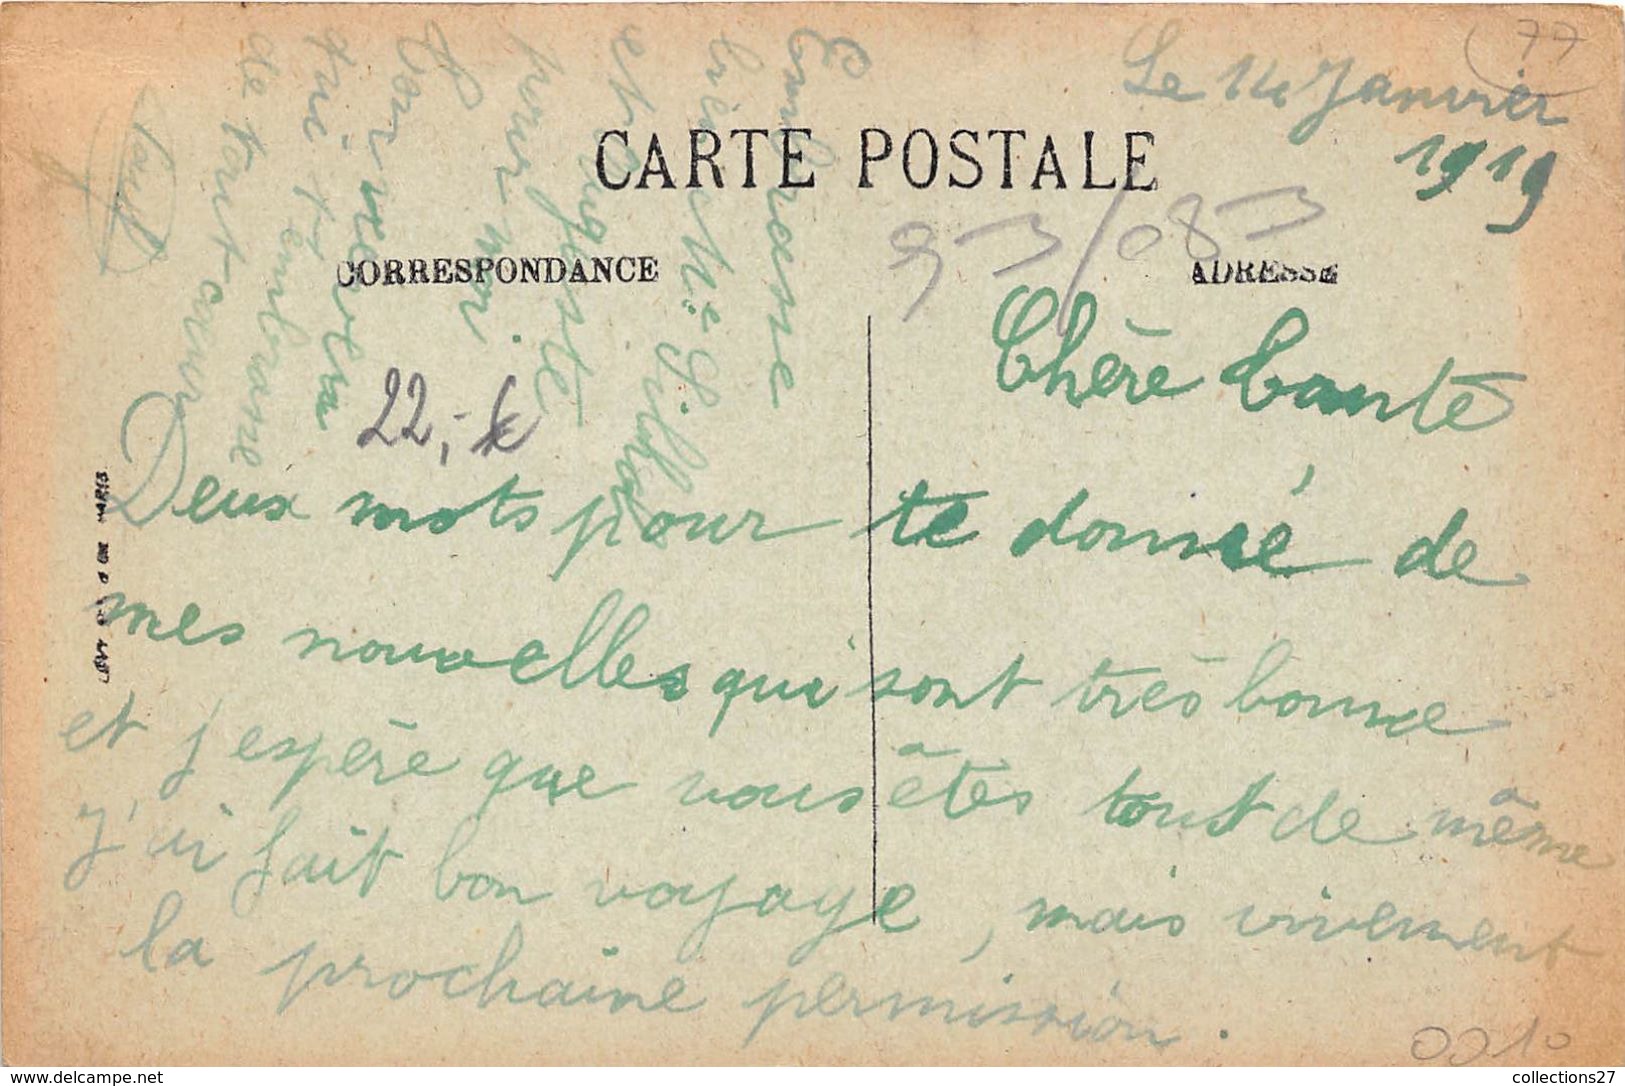 77
Le 14 Janvier
1919
CARTE POSTALE
93/083
CORRESPONDANCE
ADRESSE
22,- €
Chère Tante
Deux mots pour te donné de
mes nouvelles qui sont très bonne
et j'espère que vous êtes tout de même
j'ai fait bon voyage, mais vivement
la prochaine permission.
Embrasse
bien Mle
et Auguste
pour moi.
Ton neveu
qui t'embrasse
de tout cœur
0010
collections27